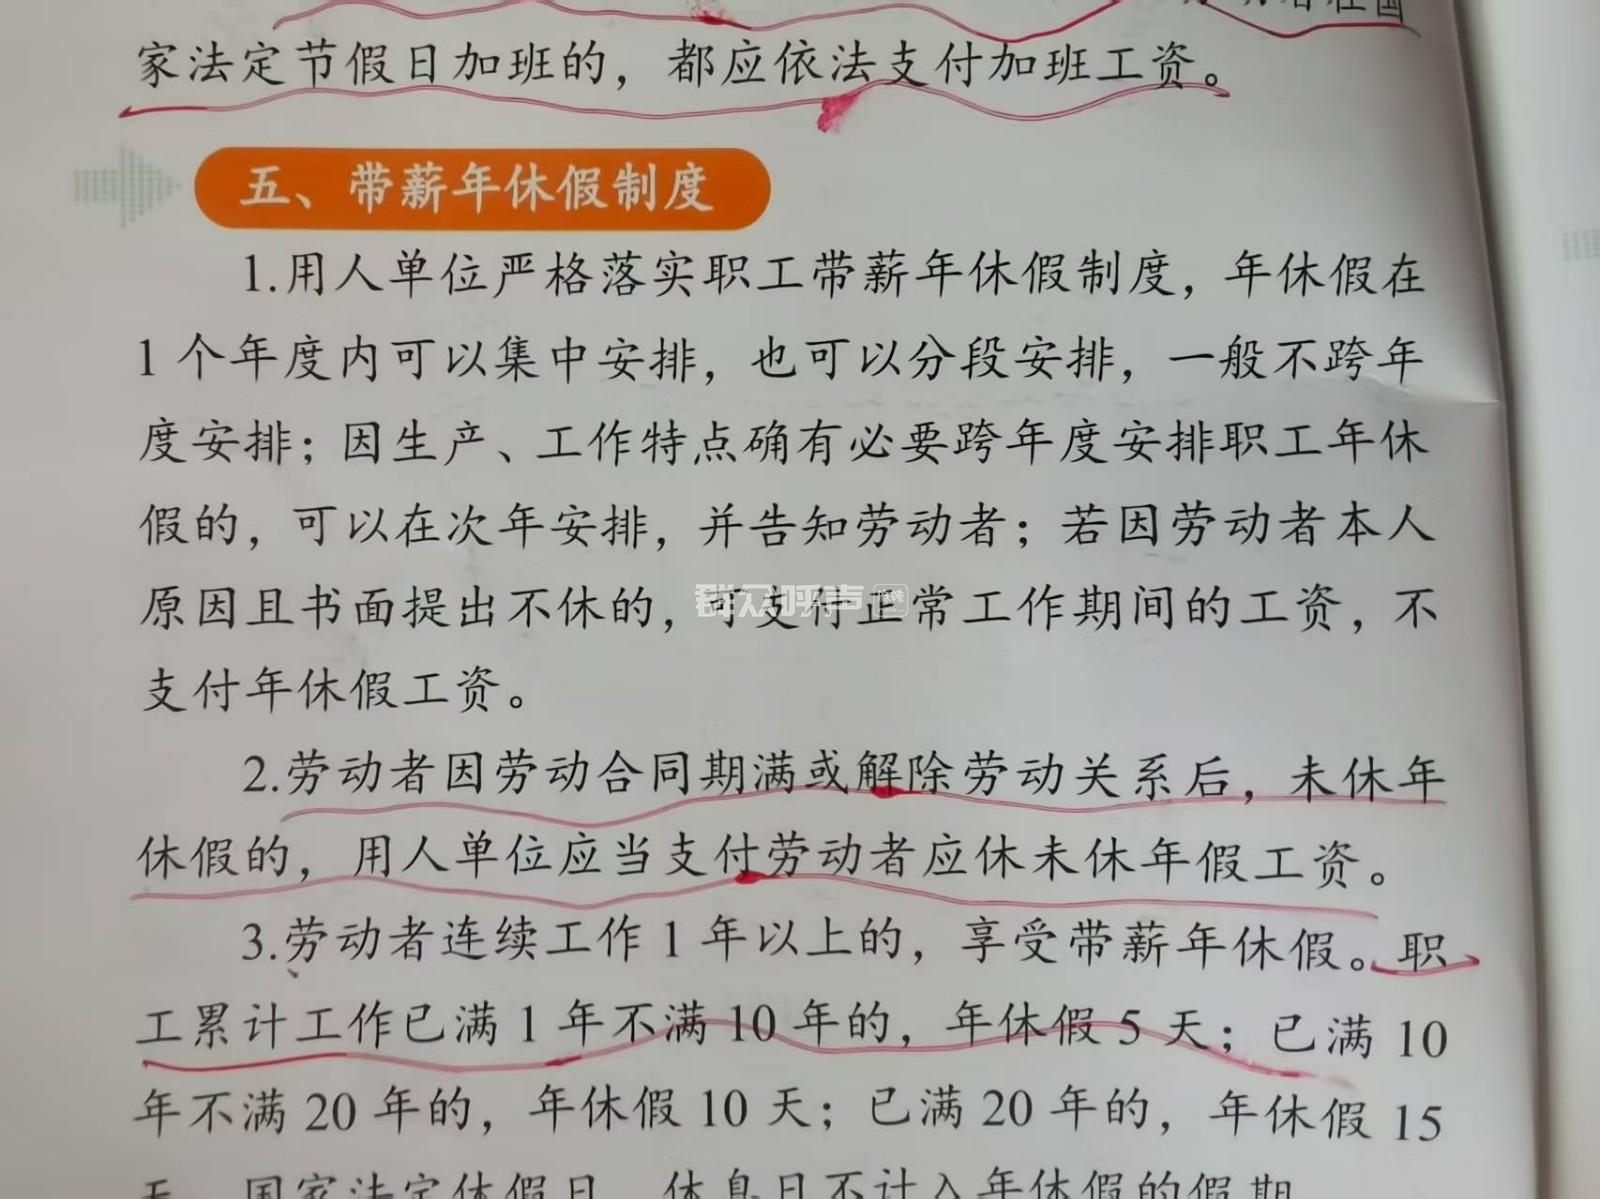 家法定节假日加班的，都应依法支付加班工资。
五、带薪年休假制度
1.用人单位严格落实职工带薪年休假制度，年休假在
1个年度内可以集中安排，也可以分段安排，一般不跨年
度安排；因生产、工作特点确有必要跨年度安排职工年休
假的，可以在次年安排，并告知劳动者；若因劳动者本人
原因且书面提出不休的，可支付正常工作期间的工资，不
支付年休假工资。
群众呼声
2.劳动者因劳动合同期满或解除劳动关系后，未休年
休假的，用人单位应当支付劳动者应休未休年假工资。
3.劳动者连续工作1年以上的，享受带薪年休假。职
工累计工作已满1年不满10年的，年休假5天；已满10
年不满20年的，年休假10天；已满20年的，年休假15
天。国家法定休假日、休息日不计入年休假的假期